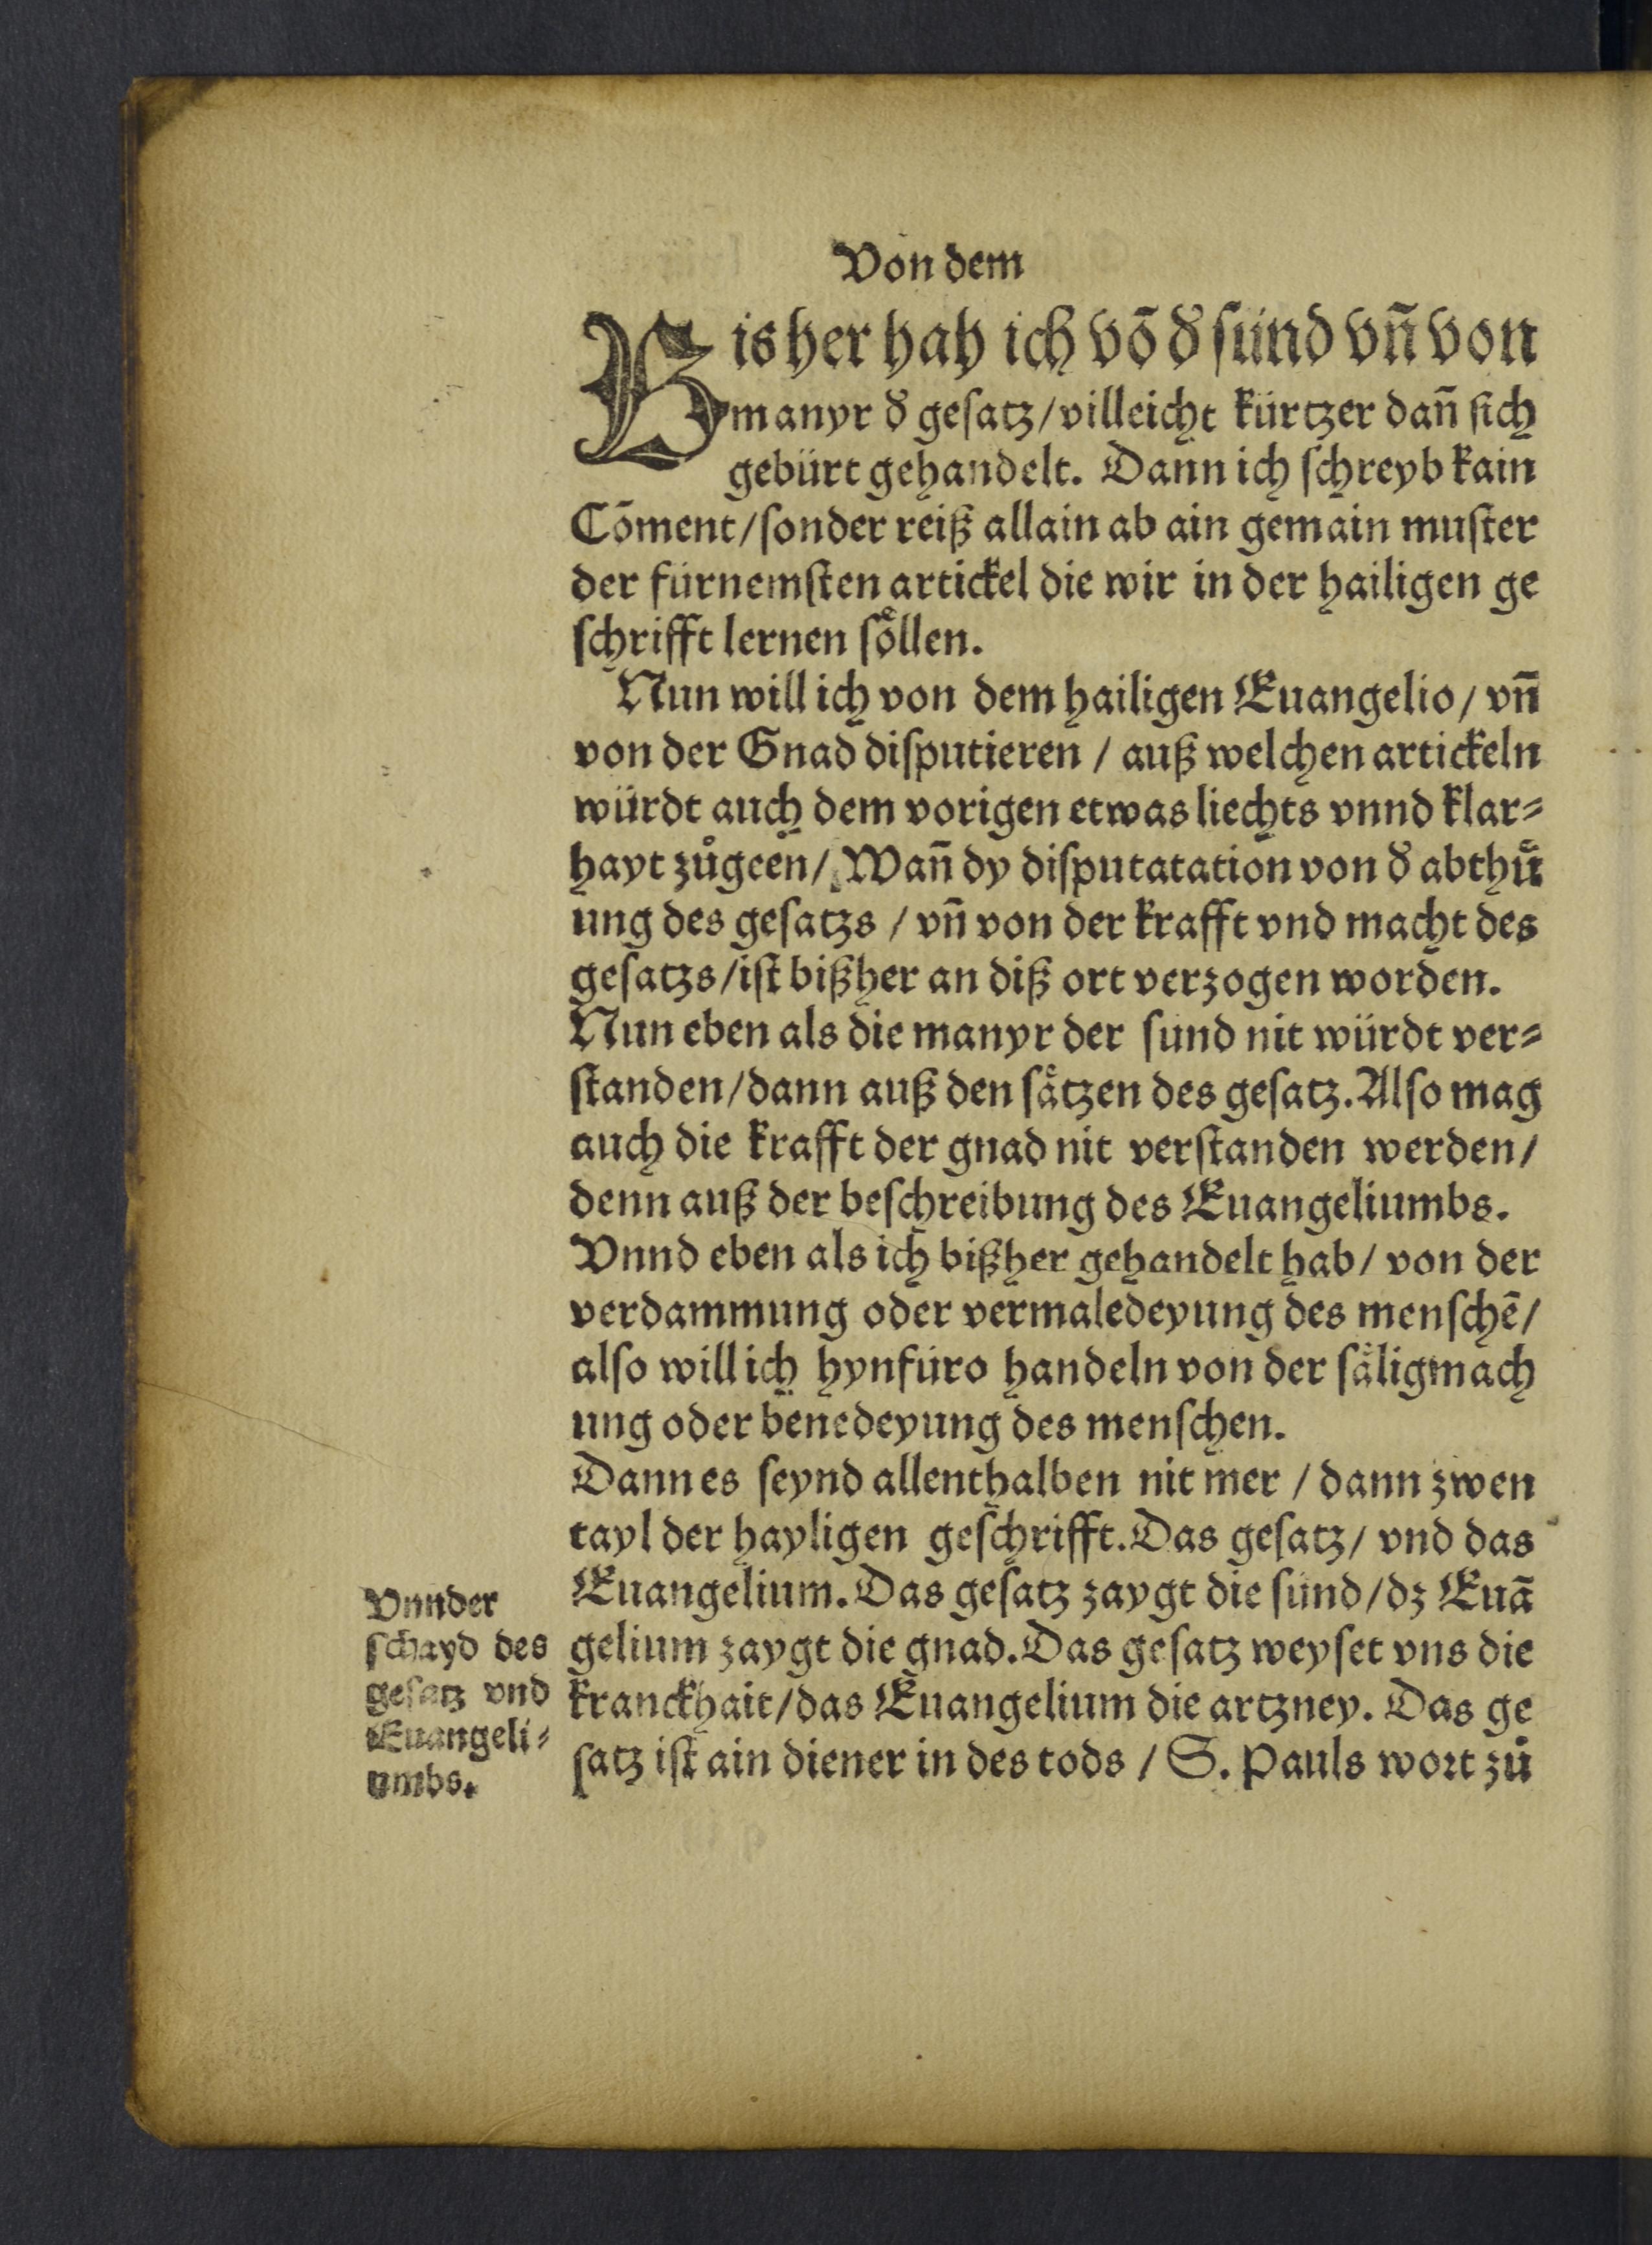 Von dem
Bis her hab ich võ ð ſünd vñ von
manyr ð geſatz/villeicht kürtzer dañ ſich
gebürt gehandelt. Dann ich ſchreyb kain
Cõment/ſonder reiß allain ab ain gemain muſter
der fürnemſten artickel die wir in der hailigen ge
ſchrifft lernen ſoͤllen.
Nun will ich von dem hailigen Euangelio/ vñ
von der Gnad diſputieren / auß welchen artickeln
würdt auch dem vorigen etwas liechts vnnd klar⸗
hayt zůgeen/ Wañ dy diſputatation von ð abthuͤ
ung des geſatzs / vñ von der krafft vnd macht des
geſatzs/iſt bißher an diß ort verzogen worden.
Nun eben als die manyr der ſünd nit würdt ver⸗
ſtanden/dann auß den ſaͤtzen des geſatz. Alſo mag
auch die krafft der gnad nit verſtanden werden/
denn auß der beſchreibung des Euangeliumbs.
Vnnd eben als ich bißher gehandelt hab/ von der
verdammung oder vermaledeyung des menſchẽ/
alſo will ich hynfüro handeln von der ſaͤligmach
ung oder benedeyung des menſchen.
Dann es ſeynd allenthalben nit mer / dann zwen
tayl der hayligen geſchrifft. Das geſatz/ vnd das
Euangelium. Das geſatz zaygt die ſünd/dz Euã
gelium zaygt die gnad. Das geſatz weyſet vns die
kranckhait/das Euangelium die artzney. Das ge
ſatz iſt ain diener in des tods / S. Pauls wort zů
Vnnder
ſchayd des
geſatz vnd
Euangeli⸗
umbs.